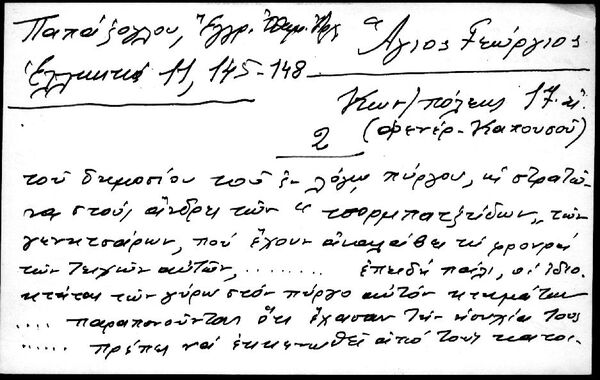 Παπάζογλου, Ἔγγρ. Ἅγιος Γεώργιος
Ἑλληνικά 11, 145-148
Κων/πόλεως 17 αἰ.
2 (Φενέρ-Καπουσού)
τοῦ δημοσίου τοῦ ἐν λόγῳ πύργου, οἱ στρατῶ-
νας τούς ἄνδρες τῶν "τσορμπατζήδων" τῶν
γενιτσαρων, πού ἔχουν ἀναλάβει τή φρουρά
τῶν τειχῶν αὐτῶν, ........ ἐπειδή πάλι, οἱ ἰδιο-
κτῆται τῶν γύρω στόν πύργο αὐτόν κτημάτων
.... παραπονοῦνται ὅτι ἔχασαν τήν ἡσυχία τους
..... πρέπει νά ἐκκενωθεῖ ἀπό τούς κατοι-